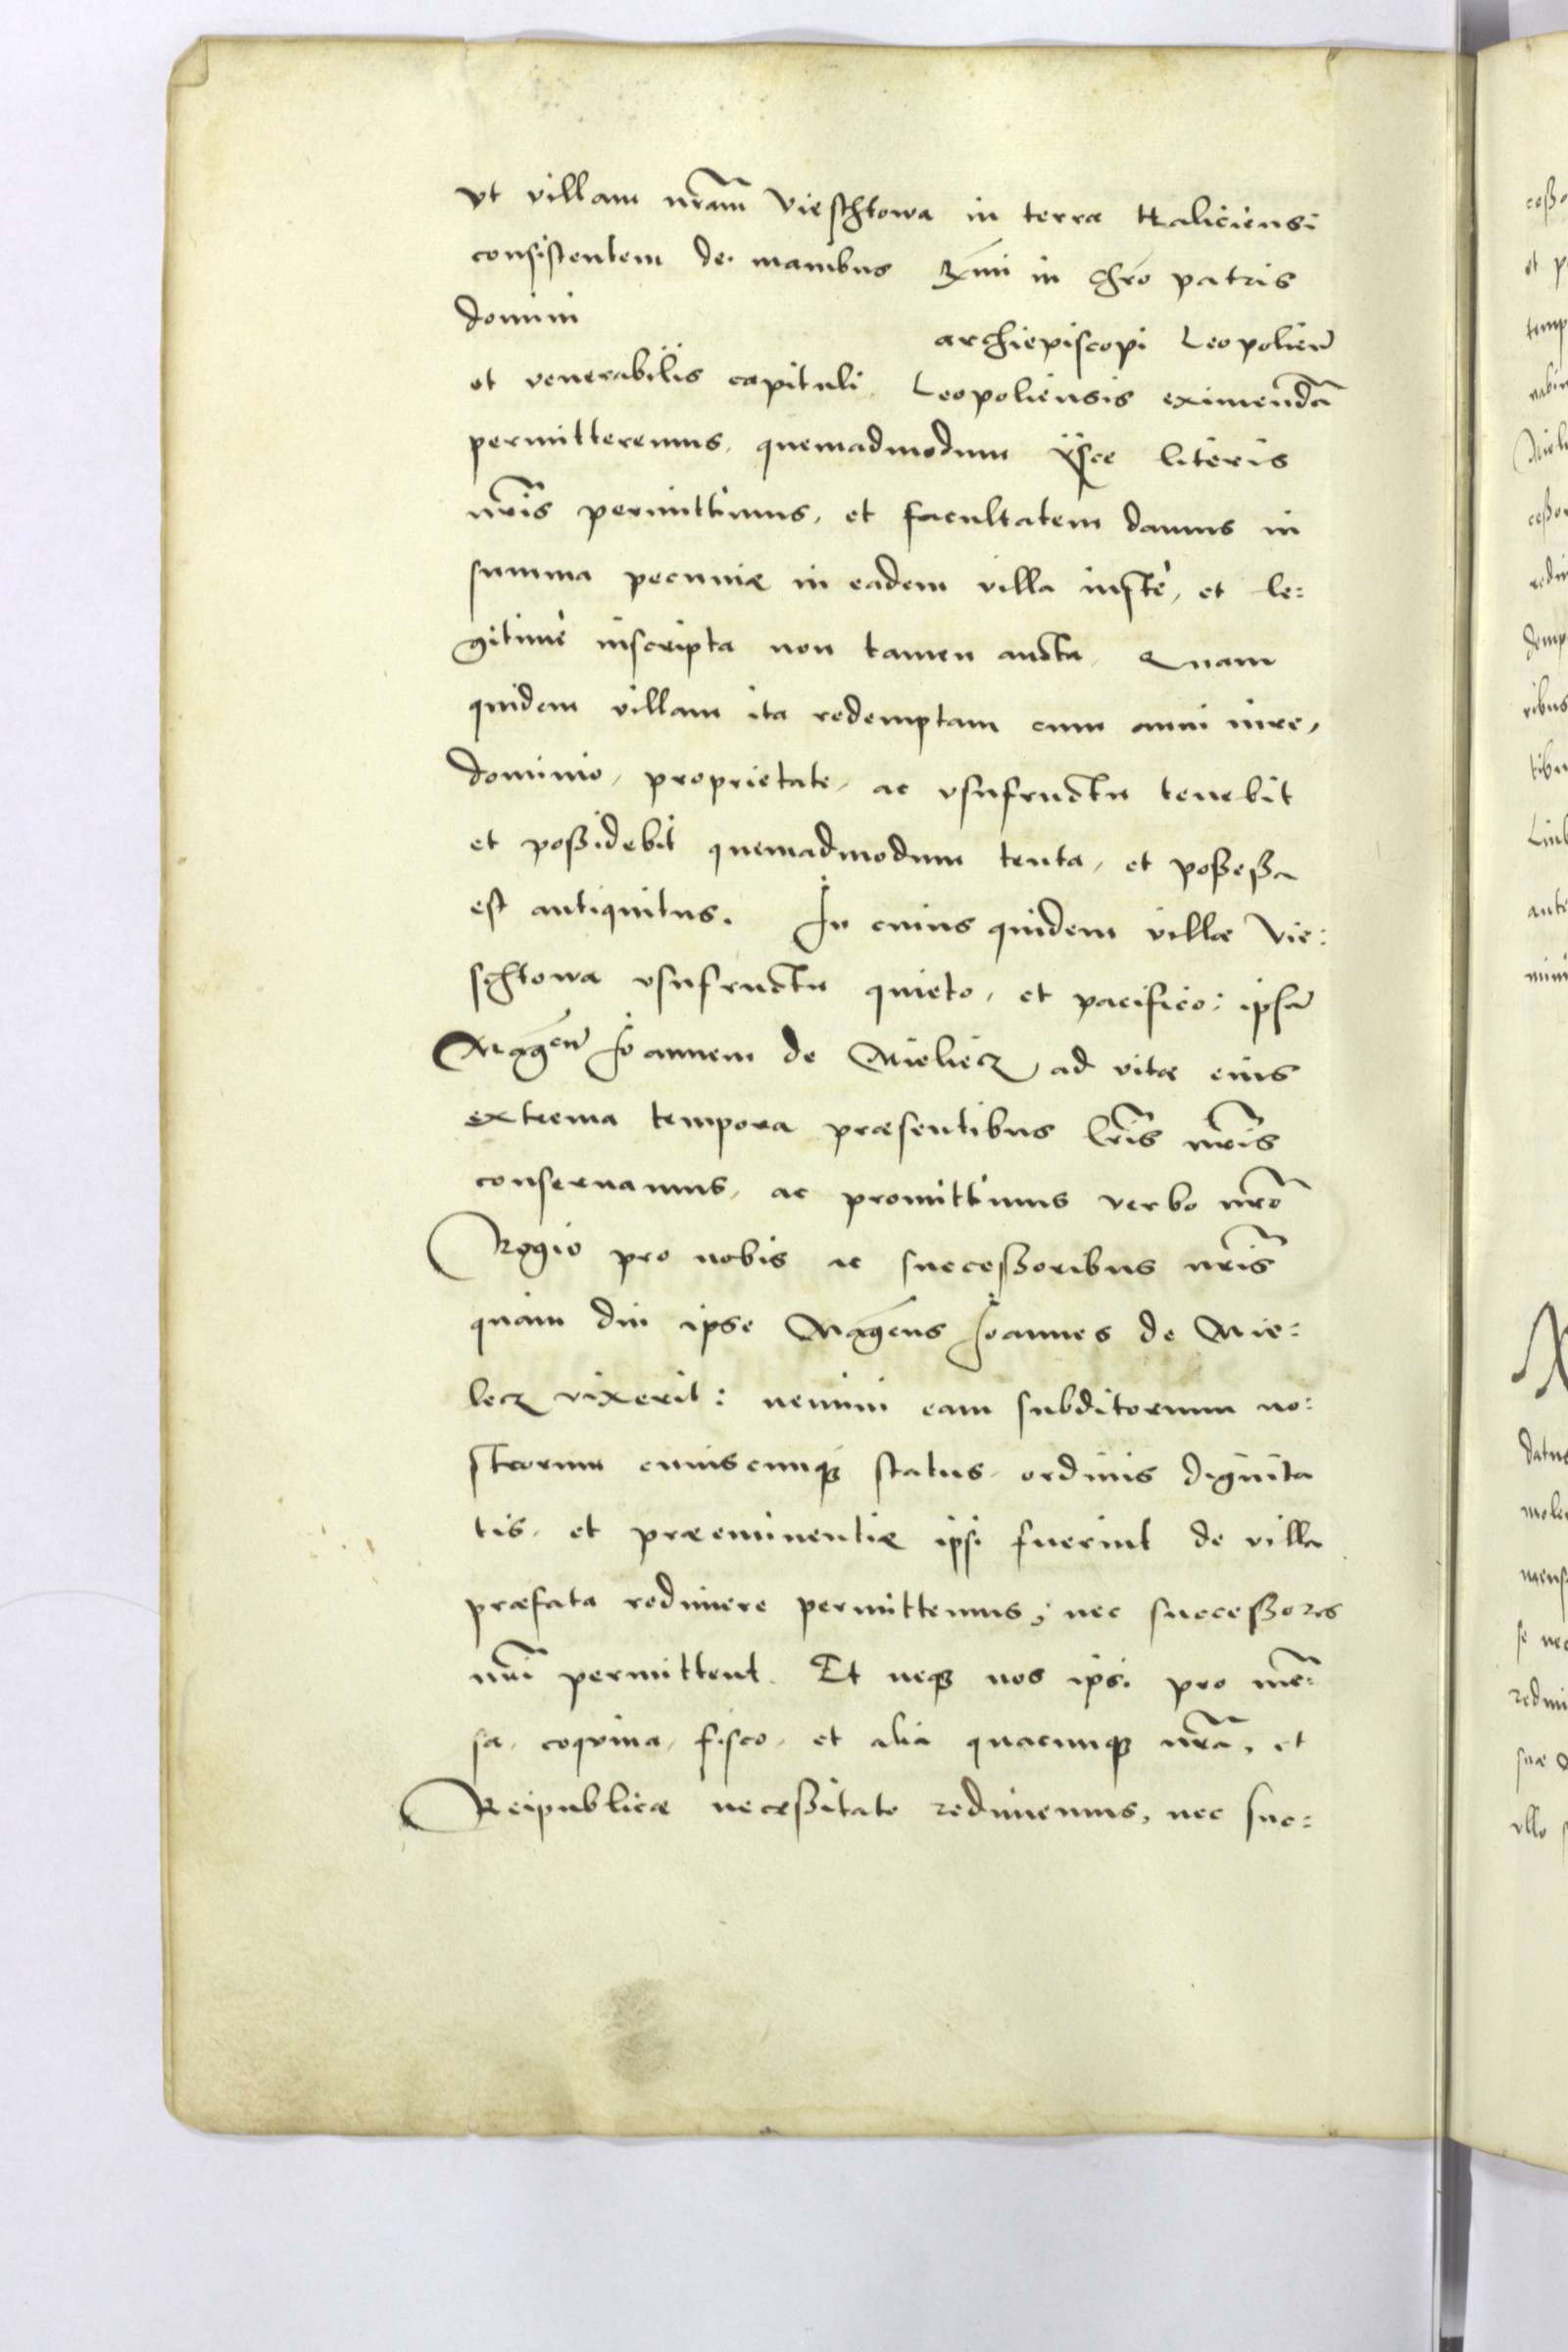 vt villam nr̃am Vieschtowa in terra Haliciensi
consistentem de manibus Rm̃i in chr̃o patris
domini
archiepiscopi Leopolień
et venerabilis capituli Leopoliensis eximendã
permitteremus. quemadmodum ÿsce literis
nr̃is permittimus, et facultatem damus in
summa pecuniæ in eadem villa iustè, et le:
gitimè inscripta non tamen aucta. Quam
quidem villam ita redemptam cum omni iure,
dominio, proprietate, ac vsufructu tenebit
et poßidebit quemadmodum tenta, et poßeßa
est antiquitus. In cuius quidem villæ Vie:
schtowa vsufructu quieto, et pacifico: ipsũ
Magcũ Joannem de Mieliecz ad vitæ eius
extrema tempora præsentibus lr̃is nr̃is
conseruamus, ac promittimus verbo nr̃o
Regio pro nobis ac succeßoribus nr̃is
quàm diu ipse Magc̃us Joannes de Mie:
lecz vixerit: nemini eam subditorum no:
strorum cuiuscunq status, ordinis dignita
tis, et præeminentiæ ipsi fuerint de villa
præfata redimere permittemus; nec succeßores
nr̃i permittent. Et neq nos ipsi pro mẽ:
sa, coquina, fisco, et alia quacunq nr̃a, et
Reipublicæ neceßitate redimemus, nec suc: